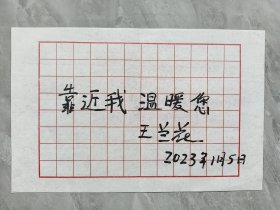 靠近我 温暖您
王兰花
2023年1月5日